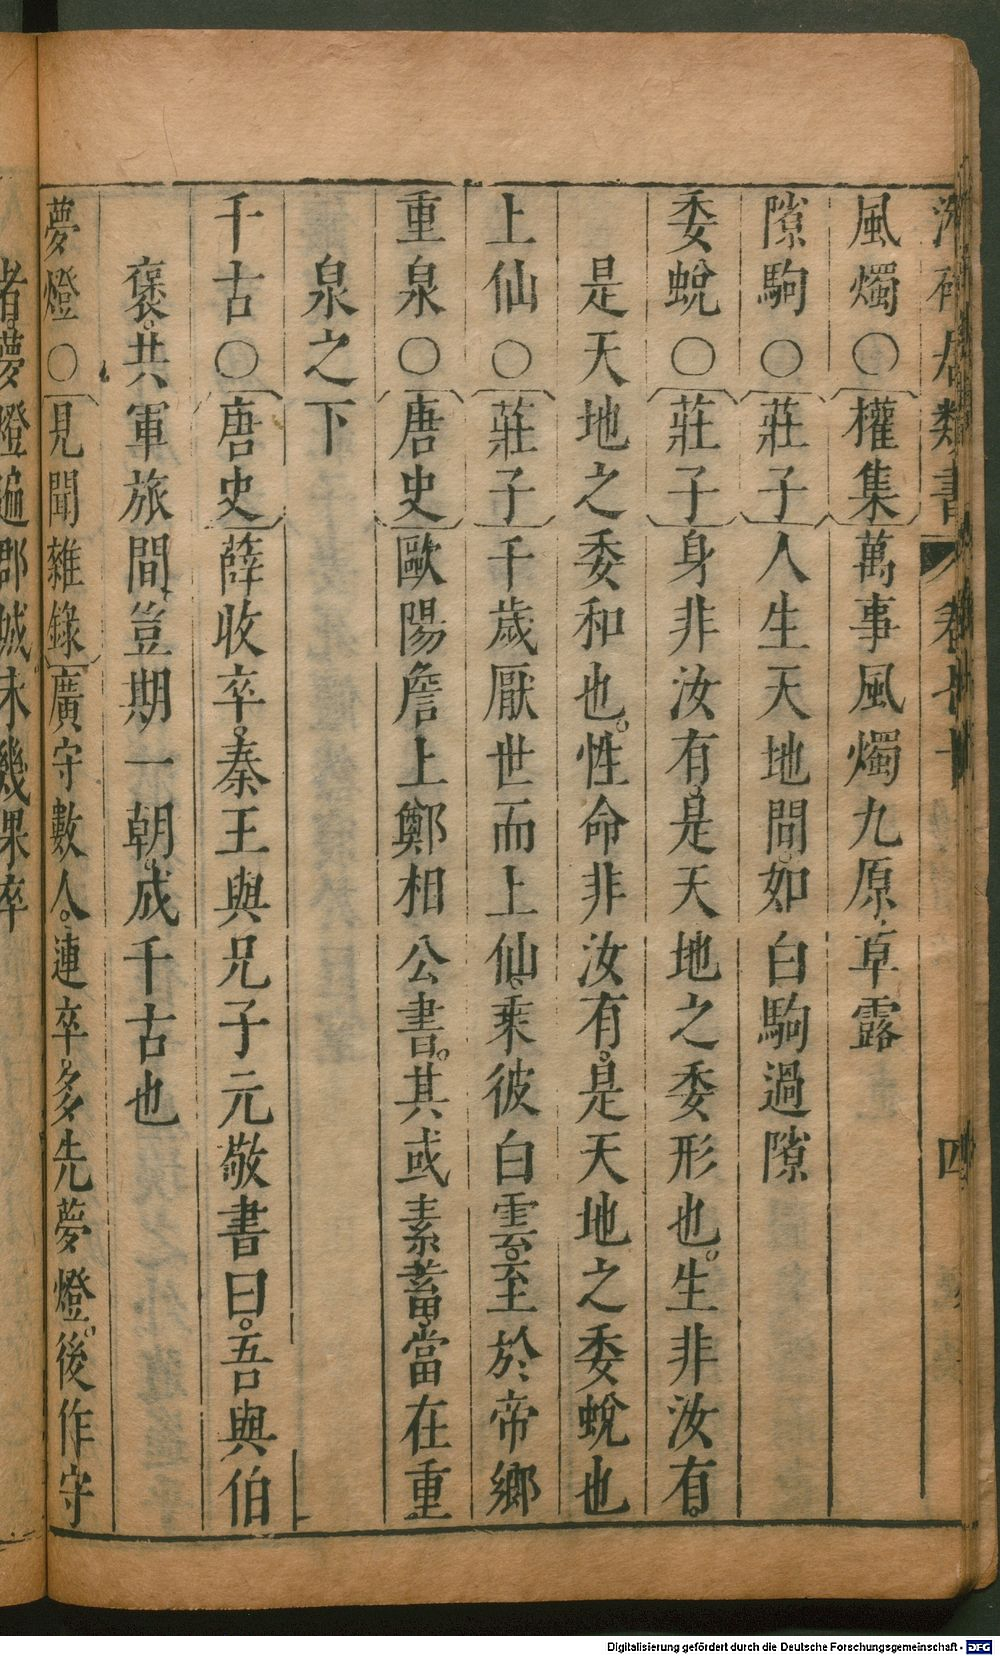 居類書 卷十 四
風燭○權集萬事風燭九原草露
隙駒○莊子人生天地間如白駒過隙
委蛻○莊子身非汝有是天地之委形也生非汝有
是天地之委和也性命非汝有是天地之委蛻也
上仙○莊子千歲厭世而上仙乘彼白雲至於帝鄉
重泉○唐史歐陽詹上鄭相公書其或素蓄當在重
泉之下
千古○唐史薛收卒秦王與兄子元敬書曰吾與伯
褒共軍旅間豈期一朝成千古也
夢燈○見聞雜錄廣守數人連卒多先夢燈後作守
者夢燈遍郡城未幾果卒
Digitalisierung gefördert durch die Deutsche Forschungsgemeinschaft - DFG